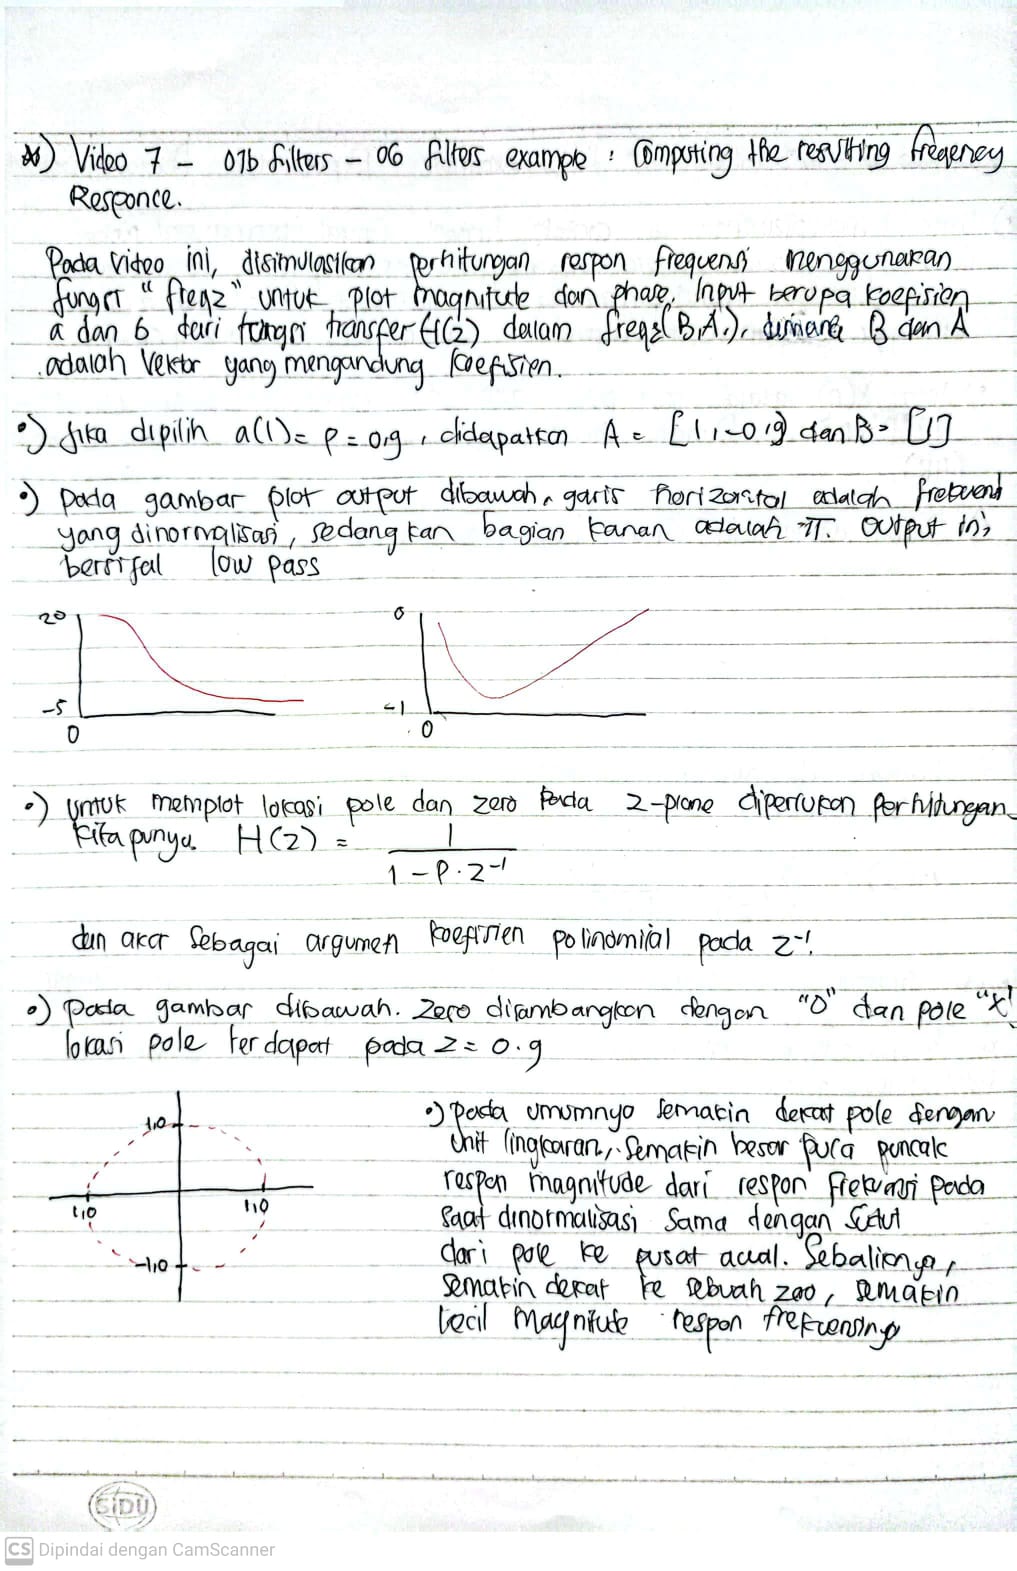 *) Video 7 - 07b filters - 06 filters example : Computing the resulting freqency
Responce.
Pada video ini, disimulasikan perhitungan respon frequensi menggunakan
fungsi "freqz" untuk plot magnitude dan phase. Input berupa koefisien
a dan b dari fungsi transfer H(z) dalam freqz(B,A.), dimana B dan A
adalah vektor yang mengandung koefisien.
•) Jika dipilih a(1) = p = 0,9 , didapatkan A = [1, -0,9] dan B = [1]
•) pada gambar plot output dibawah, garis horizontal adalah frekuensi
yang dinormalisasi, sedangkan bagian kanan adalah π. Output ini
bersifat low pass
20
-5
0
0
-1
0
•) Untuk memplot lokasi pole dan zero pada z-plane diperlukan perhitungan.
kita punya H(z) = 1
1 - p . z-1
dan akar sebagai argumen koefisien polinomial pada z-1.
•) pada gambar dibawah. zero dilambangkan dengan "0" dan pole "x"
lokasi pole terdapat pada z = 0.9
1,0
1,0
1,0
-1,0
•) pada umumnya semakin dekat pole dengan
unit lingkaran, semakin besar pula puncak
respon magnitude dari respon frekuensi pada
saat dinormalisasi sama dengan sudut
dari pole ke pusat awal. Sebaliknya,
semakin dekat ke sebuah zero, semakin
kecil magnitude respon frekuensinya
SiDU
CS Dipindai dengan CamScanner